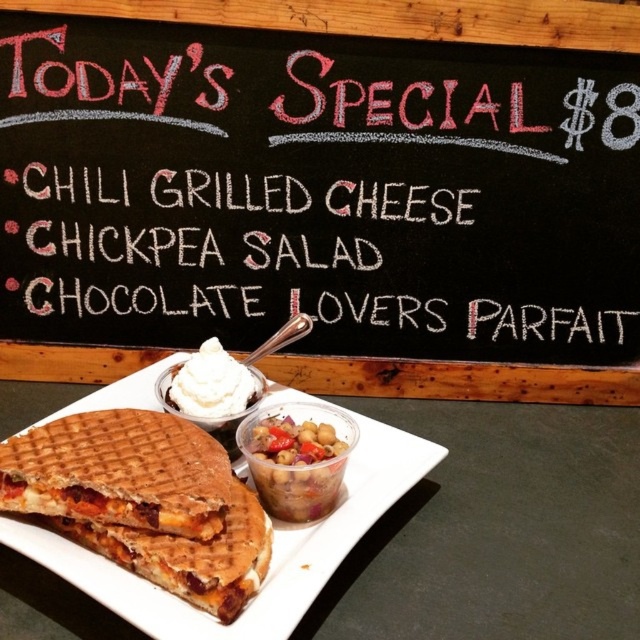 TODAY'S SPECIAL $8
• CHILI GRILLED CHEESE
• CHICKPEA SALAD
• CHOCOLATE LOVERS PARFAIT